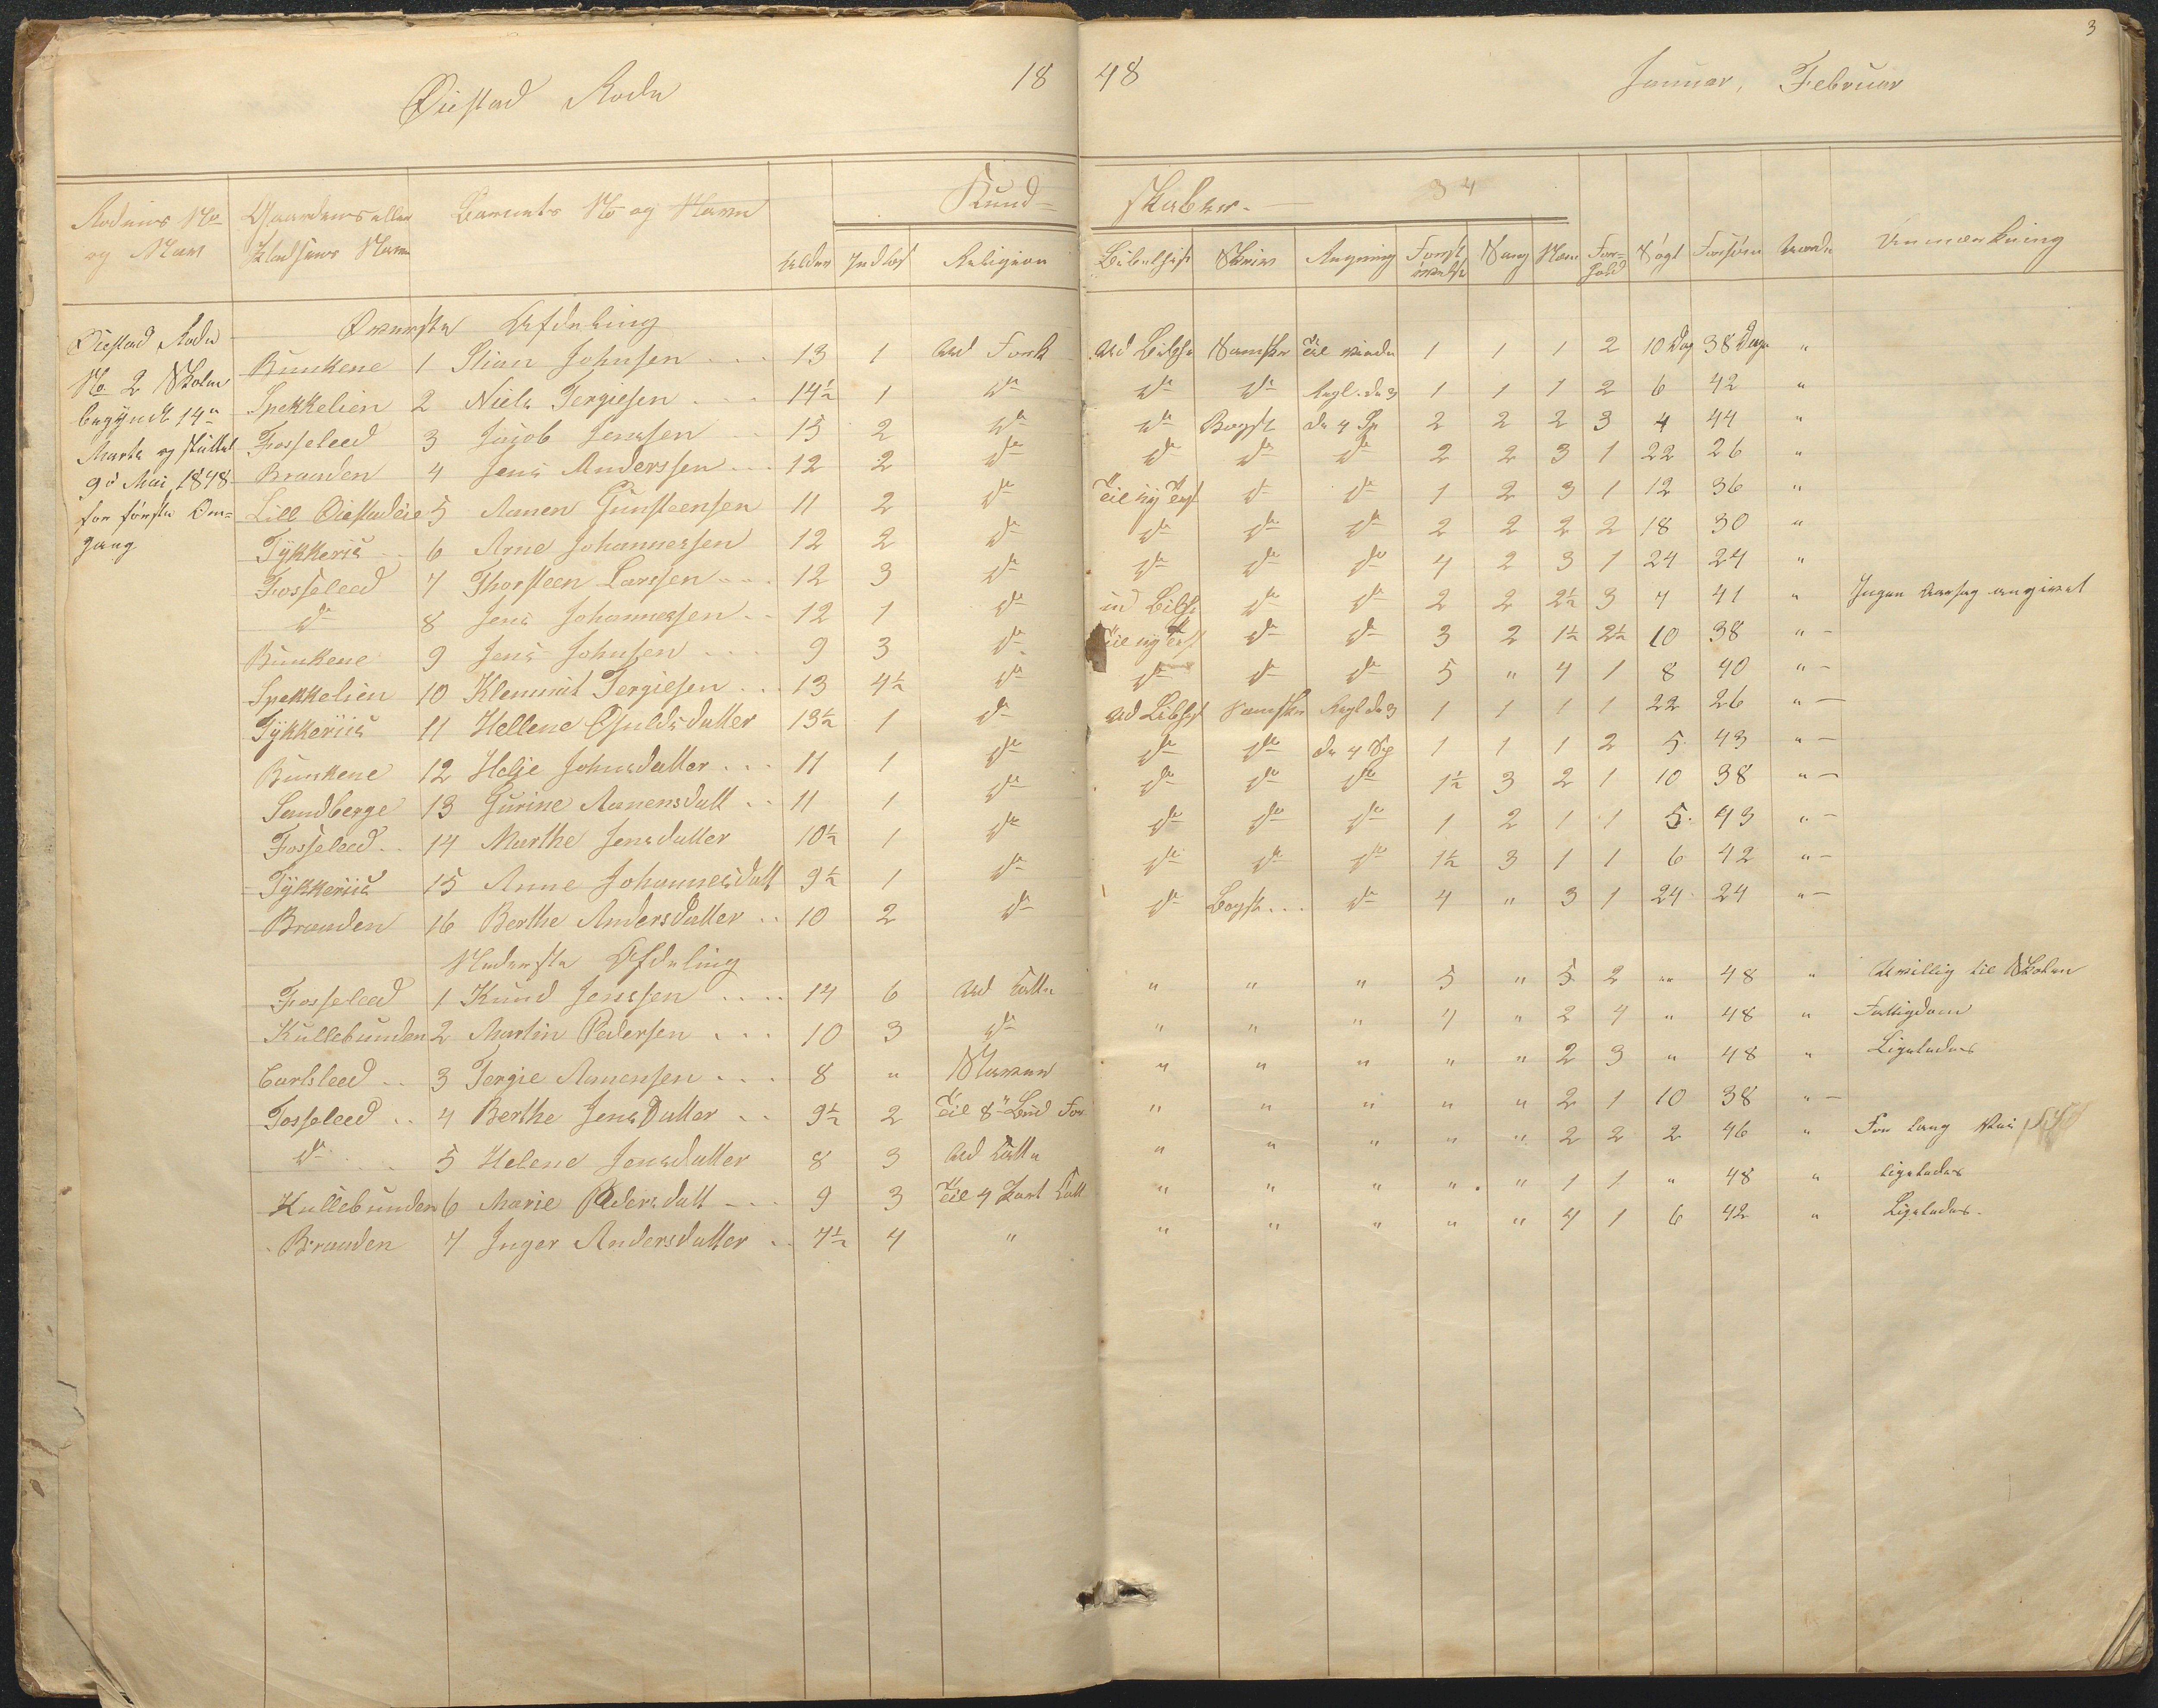 3
Øiestad Rode 18 48 Januar, Februar
Kund= skaber. 34
Rodens No Gaardens eller Barnets No og Navn Alder Indlæs Religion Bibelhist Skrive Regning Forst Sang Mod For= Søgt Forsømt Anmærkning
og Navn Pladsens Navn øvelse hold
Øverste Afdeling
Øiestad Rode
No 2 Skolen
begyndt 14de
Marts og sluttet
9de Mai 1848
for første Om=
gang
Bunkene 1 Stian Johnsen 13 1 Ud Fork Ud Bibhs Samskr 1 1 1 2 10 Dag 38 Dage "
Spekkelien 2 Niels Tergiesen 14½ 1 do do do Regl. de 3 1 1 1 2 6 42 "
Fosseleed 3 Jacob Jenssen 15 2 do do Bogst de 4 Sp 2 2 2 3 4 44 "
Braaden 4 Jens Anderssen 12 2 do do do do 2 2 3 1 22 26 "
Lill Øiestadeie 5 Aanen Gunsteensen 11 2 do Til ny Test do do 1 2 3 1 12 36 "
Tykkeriis 6 Arne Johannessen 12 2 do do do do 2 2 2 2 18 30 "
Fosseleed 7 Thorsteen Larssen 12 3 do do do do 4 2 3 1 24 24 "
do 8 Jens Johannessen 12 1 do ud Bibhs do do 2 2 2½ 3 7 41 " Ingen Aarsag angivet
Bunkene 9 Jens Johnsen 9 3 do Til ny Test do do 3 2 1½ 2½ 10 38 " -
Spekkelien 10 Klemmit Tergiesen 13 4½ do do do do 5 " 4 1 8 40 " -
Tykkeriis 11 Hellene Osuldsdatter 13½ 1 do Ud Bibhst Samskr Regl de 3 1 1 1 1 22 26 " -
Bunkene 12 Helje Johnsdatter 11 1 do do do de 4 Sp 1 1 1 2 5 43 " -
Sandberge 13 Gurine Aanensdatt 11 1 do do do do 1½ 3 2 1 10 38 " -
Fosseleed 14 Marthe Jensdatter 10½ 1 do do do do 1 2 1 1 5 43 " -
Tykkeriis 15 Anne Johannesdatt 9½ 1 do do do do 1½ 3 1 1 6 42 " -
Braaden 16 Berthe Andersdatter 10 2 do do Bogst do 4 " 3 1 24 24 " -
Nederste Afdeling
Fosseleed 1 Knud Jenssen 14 6 Ud Katte " " " 5 " 5 2 " 48 " Uvillig til Skolen
Kullebunden 2 Martin Pedersen 10 3 do " " " 4 " 2 4 " 48 " Fattigdom
Carlsleed 3 Tergie Aanensen 8 " Staver " " " " " 2 3 " 48 " Ligeledes
Fosseleed 4 Berthe Jens Datter 9½ 2 Til 8de Bud For " " " " " 2 1 10 38 " -
do 5 Helene Jensdatter 8 3 Ud Katte " " " " " 2 2 2 46 " For lang Vei
Kullebunden 6 Marie Pedersdatt 9 3 Til 4 Part Katt " " " " " 1 1 " 48 " Ligeledes
Braaden 7 Inger Andersdatter 7½ 4 " " " " " " 4 1 6 42 " Ligeledes